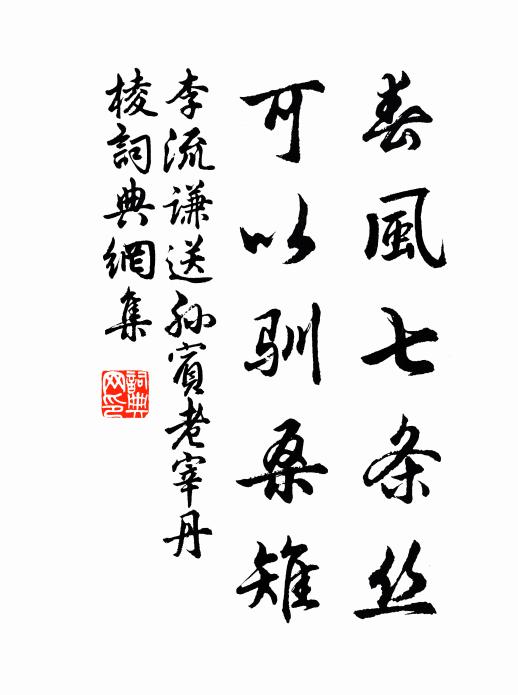 春風七条丝
可以驯桑雉
李流谦送孙賓老宰丹
棱詞典網集
詞典網印